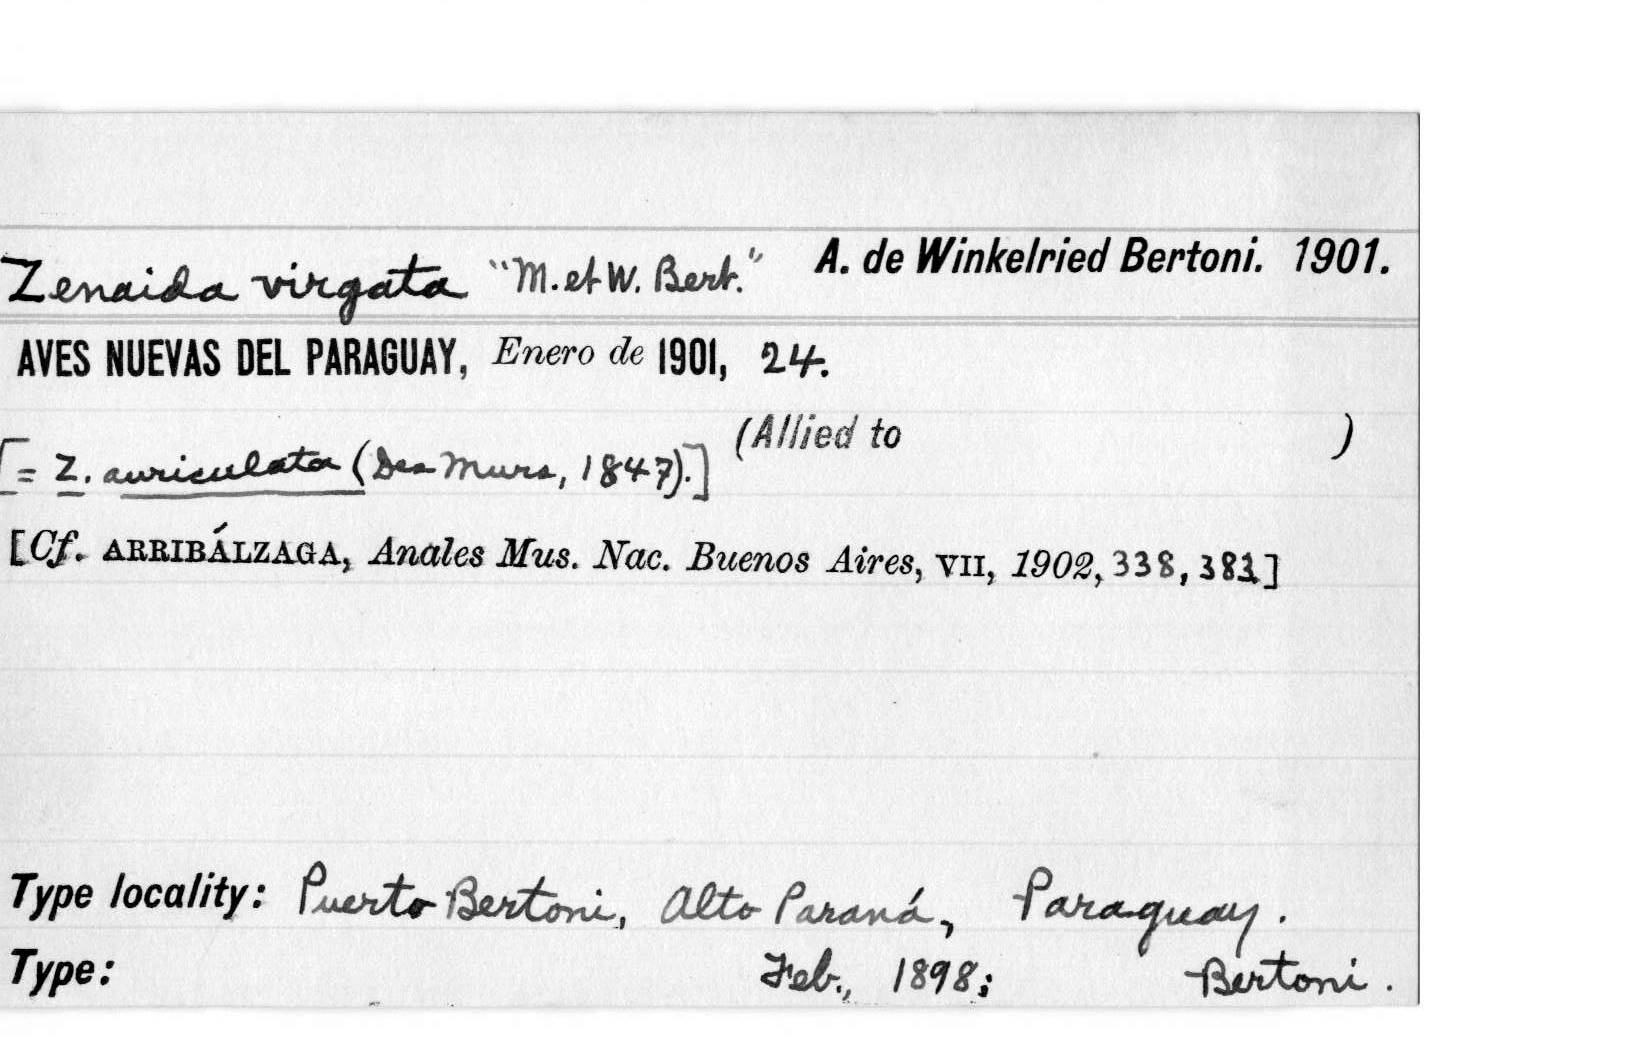 Zenaida virgata "M. et W. Bert." A. de Winkelried Bertoni. 1901.
AVES NUEVAS DEL PARAGUAY, Enero de 1901, 24.
(Allied to )
[= Z. auriculata (Des Murs, 1847).]
[Cf. ARRIBÁLZAGA, Anales Mus. Nac. Buenos Aires, VII, 1902, 338, 381]
Type locality: Puerto Bertoni, Alto Paraná, Paraguay.
Type: Feb., 1898; Bertoni.